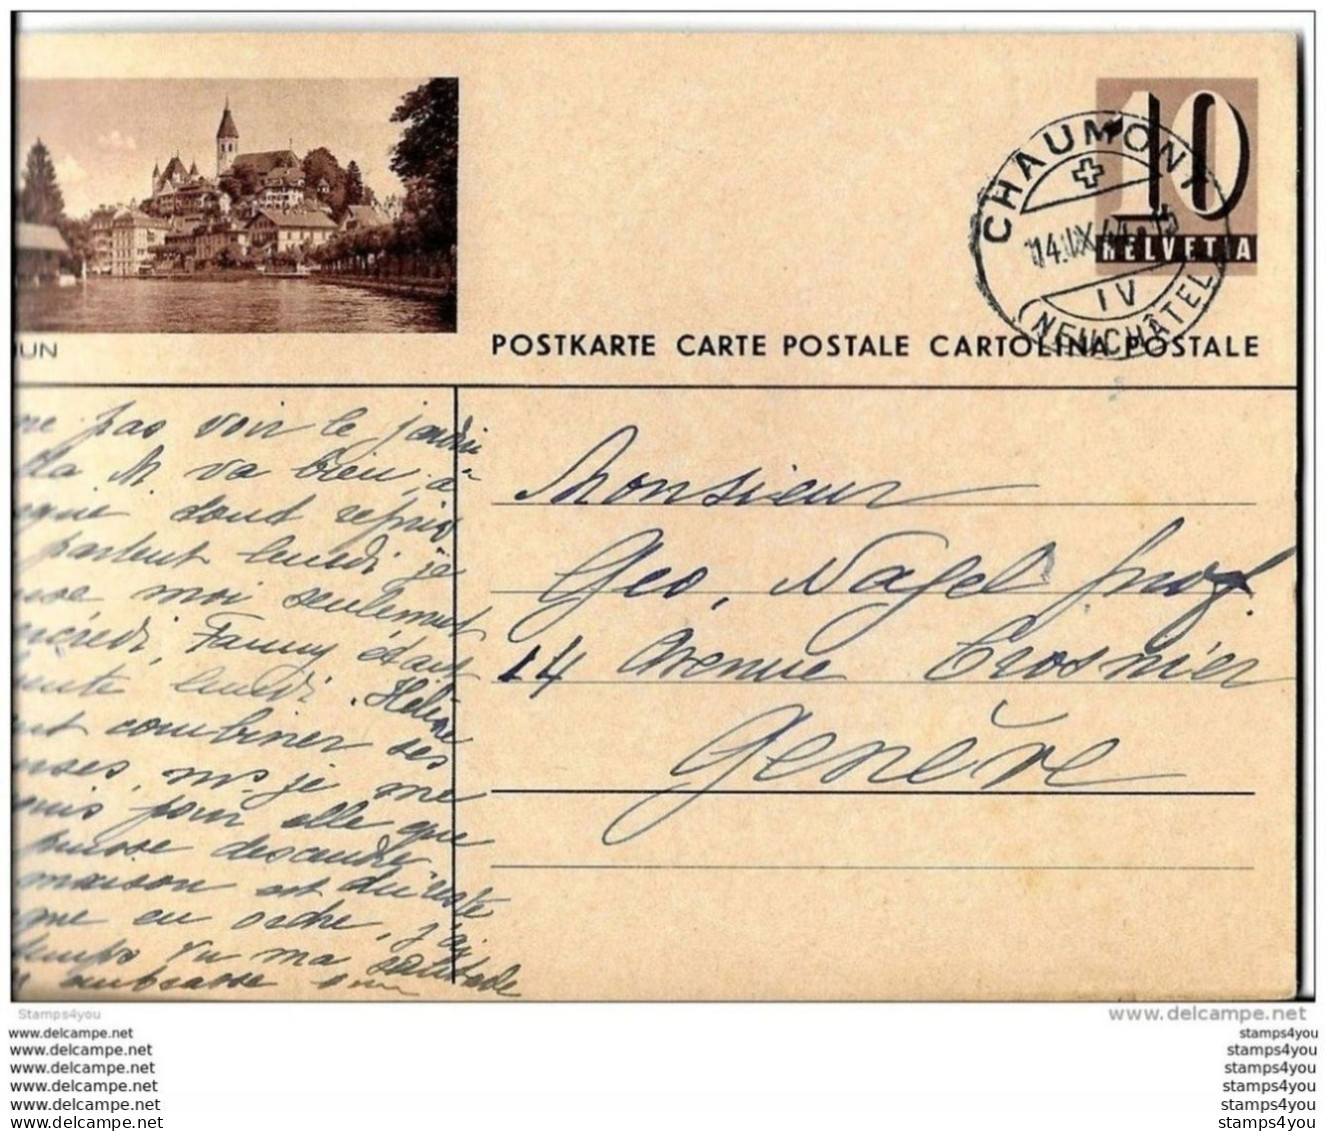 10
HELVETIA
CHAUMONT
14.IX
IV
(NEUCHÂTEL)
UN
POSTKARTE CARTE POSTALE CARTOLINA POSTALE
pas voir le jardin
va bien, à
tout repris
partent lundi je
moi seulement
Fanny étant
lundi. Hélène
combiner ses
je me
pour elle que
puisse descendre.
maison est du reste
en ordre, j'ai
vu ma solitude
embrasse
Monsieur
Geo. Nagel prof.
14 Avenue Crosnier
Genève
Stamps4you
www.delcampe.net
www.delcampe.net
www.delcampe.net
www.delcampe.net
www.delcampe.net
www.delcampe.net
www.delcampe.net
stamps4you
stamps4you
stamps4you
stamps4you
stamps4you
stamps4you